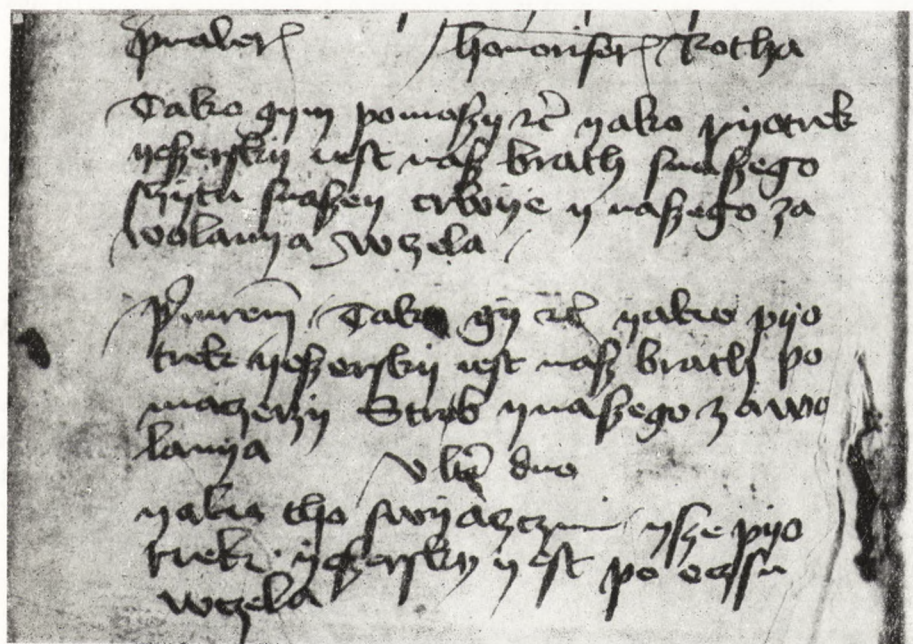 Rotha
Tako gym pomoszy rc yako pyotrek
yeszersky iest nasz brath snaszego
sczytu snaszey crwye y naszego za
wolanya wczela
Tako gy rc yako pyo
trek yeszerskij iest nasz brath po
maczerzy Streb ynaszego zawo
lanya
yako tho swyaczczimi ysze pyo
trek yeszersky yest po oczszu
wczela